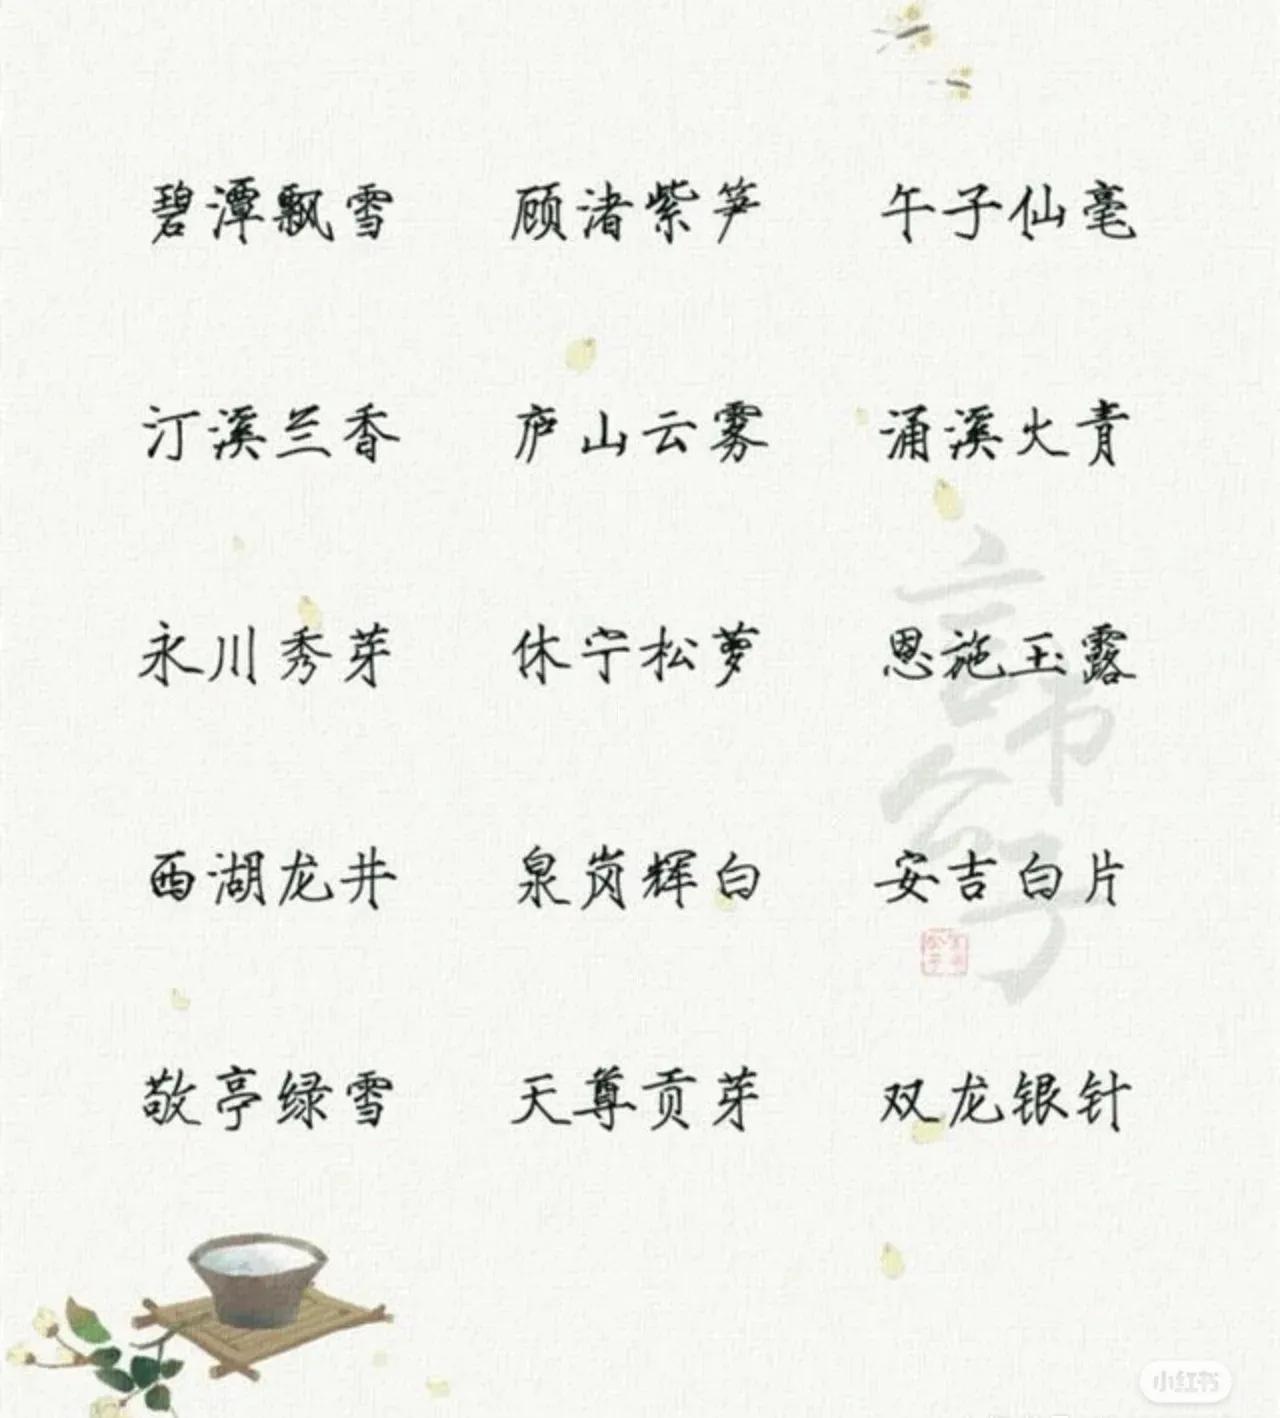 碧潭飘雪 顾渚紫笋 午子仙毫
汀溪兰香 庐山云雾 涌溪火青
永川秀芽 休宁松萝 恩施玉露
西湖龙井 泉岗辉白 安吉白片
敬亭绿雪 天尊贡芽 双龙银针
小红书